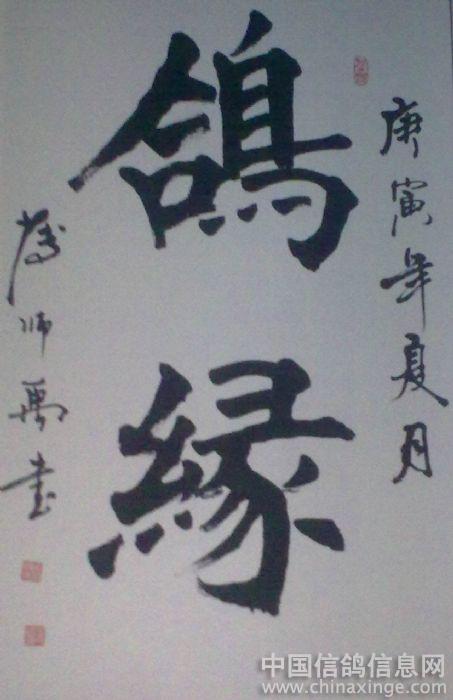 庚寅年夏月
鴿緣
師禹書
中国信鸽信息网
www.chinaxinge.com